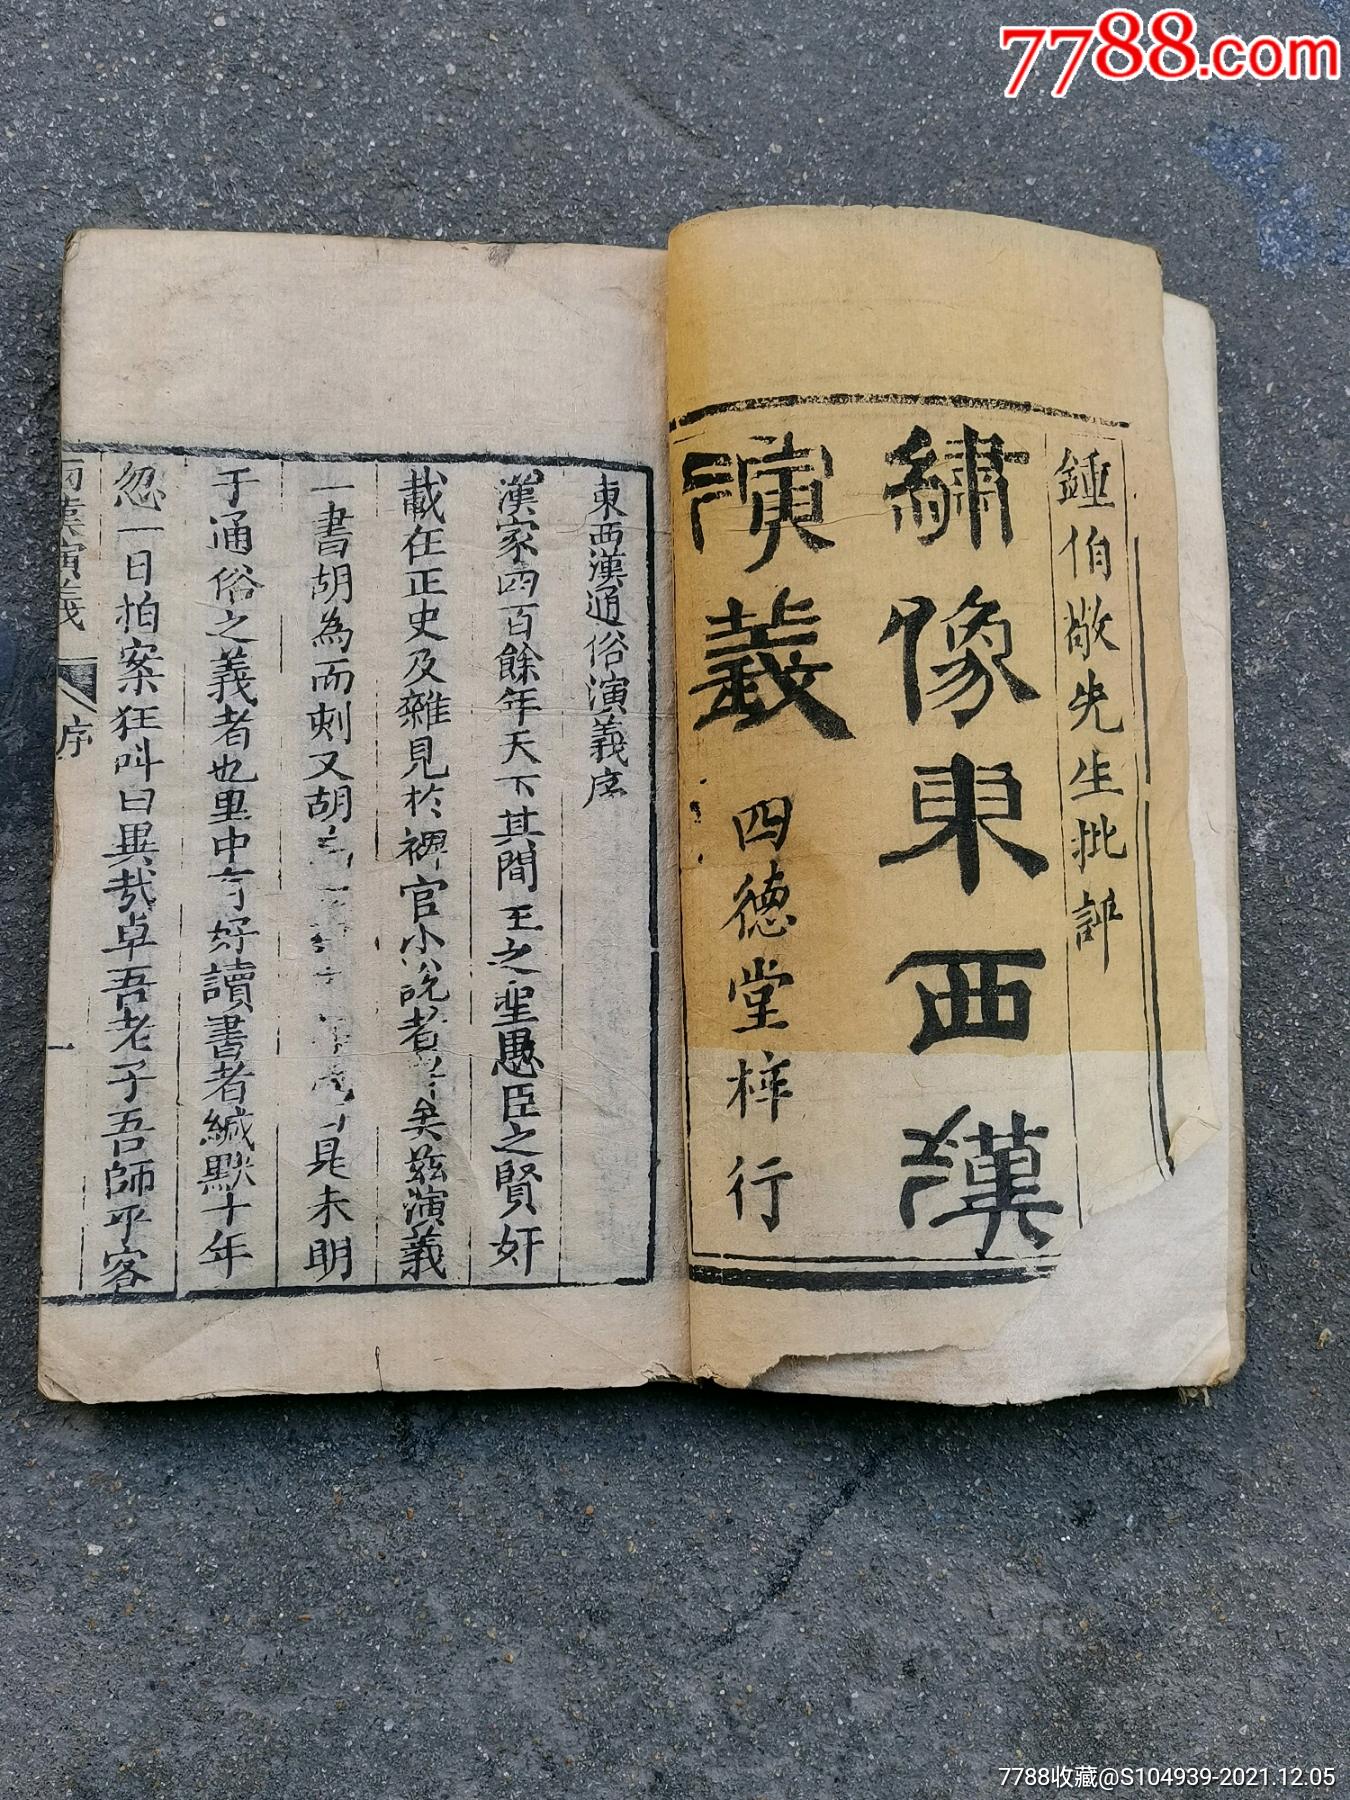 7788.com
鍾伯敬先生批評
繡像東西漢
演義
四德堂梓行
東西漢通俗演義序
漢家四百餘年天下其間王之聖愚臣之賢奸
載在正史及雜見於裨官小說者矣茲演義
一書胡為而刺又胡是未明
于通俗之義者也里中有好讀書者緘默十年
忽一日拍案狂叫曰異哉卓吾老子吾師乎客
兩漢演義
序
一
7788收藏@S104939-2021.12.05